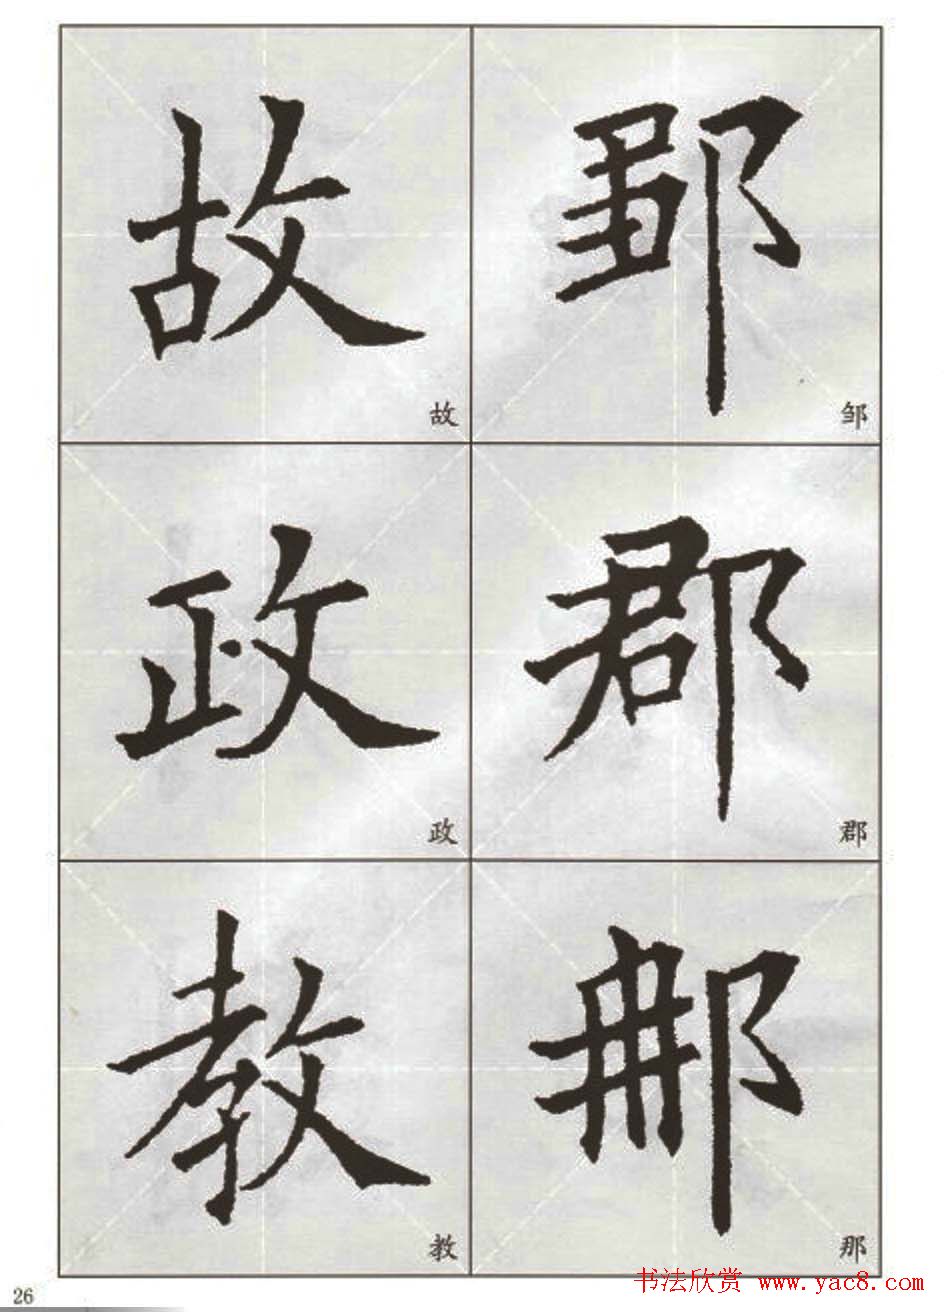 故 邹
故 邹
政 郡
政 郡
教 那
教 那
26
书法欣赏 www.yac8.com